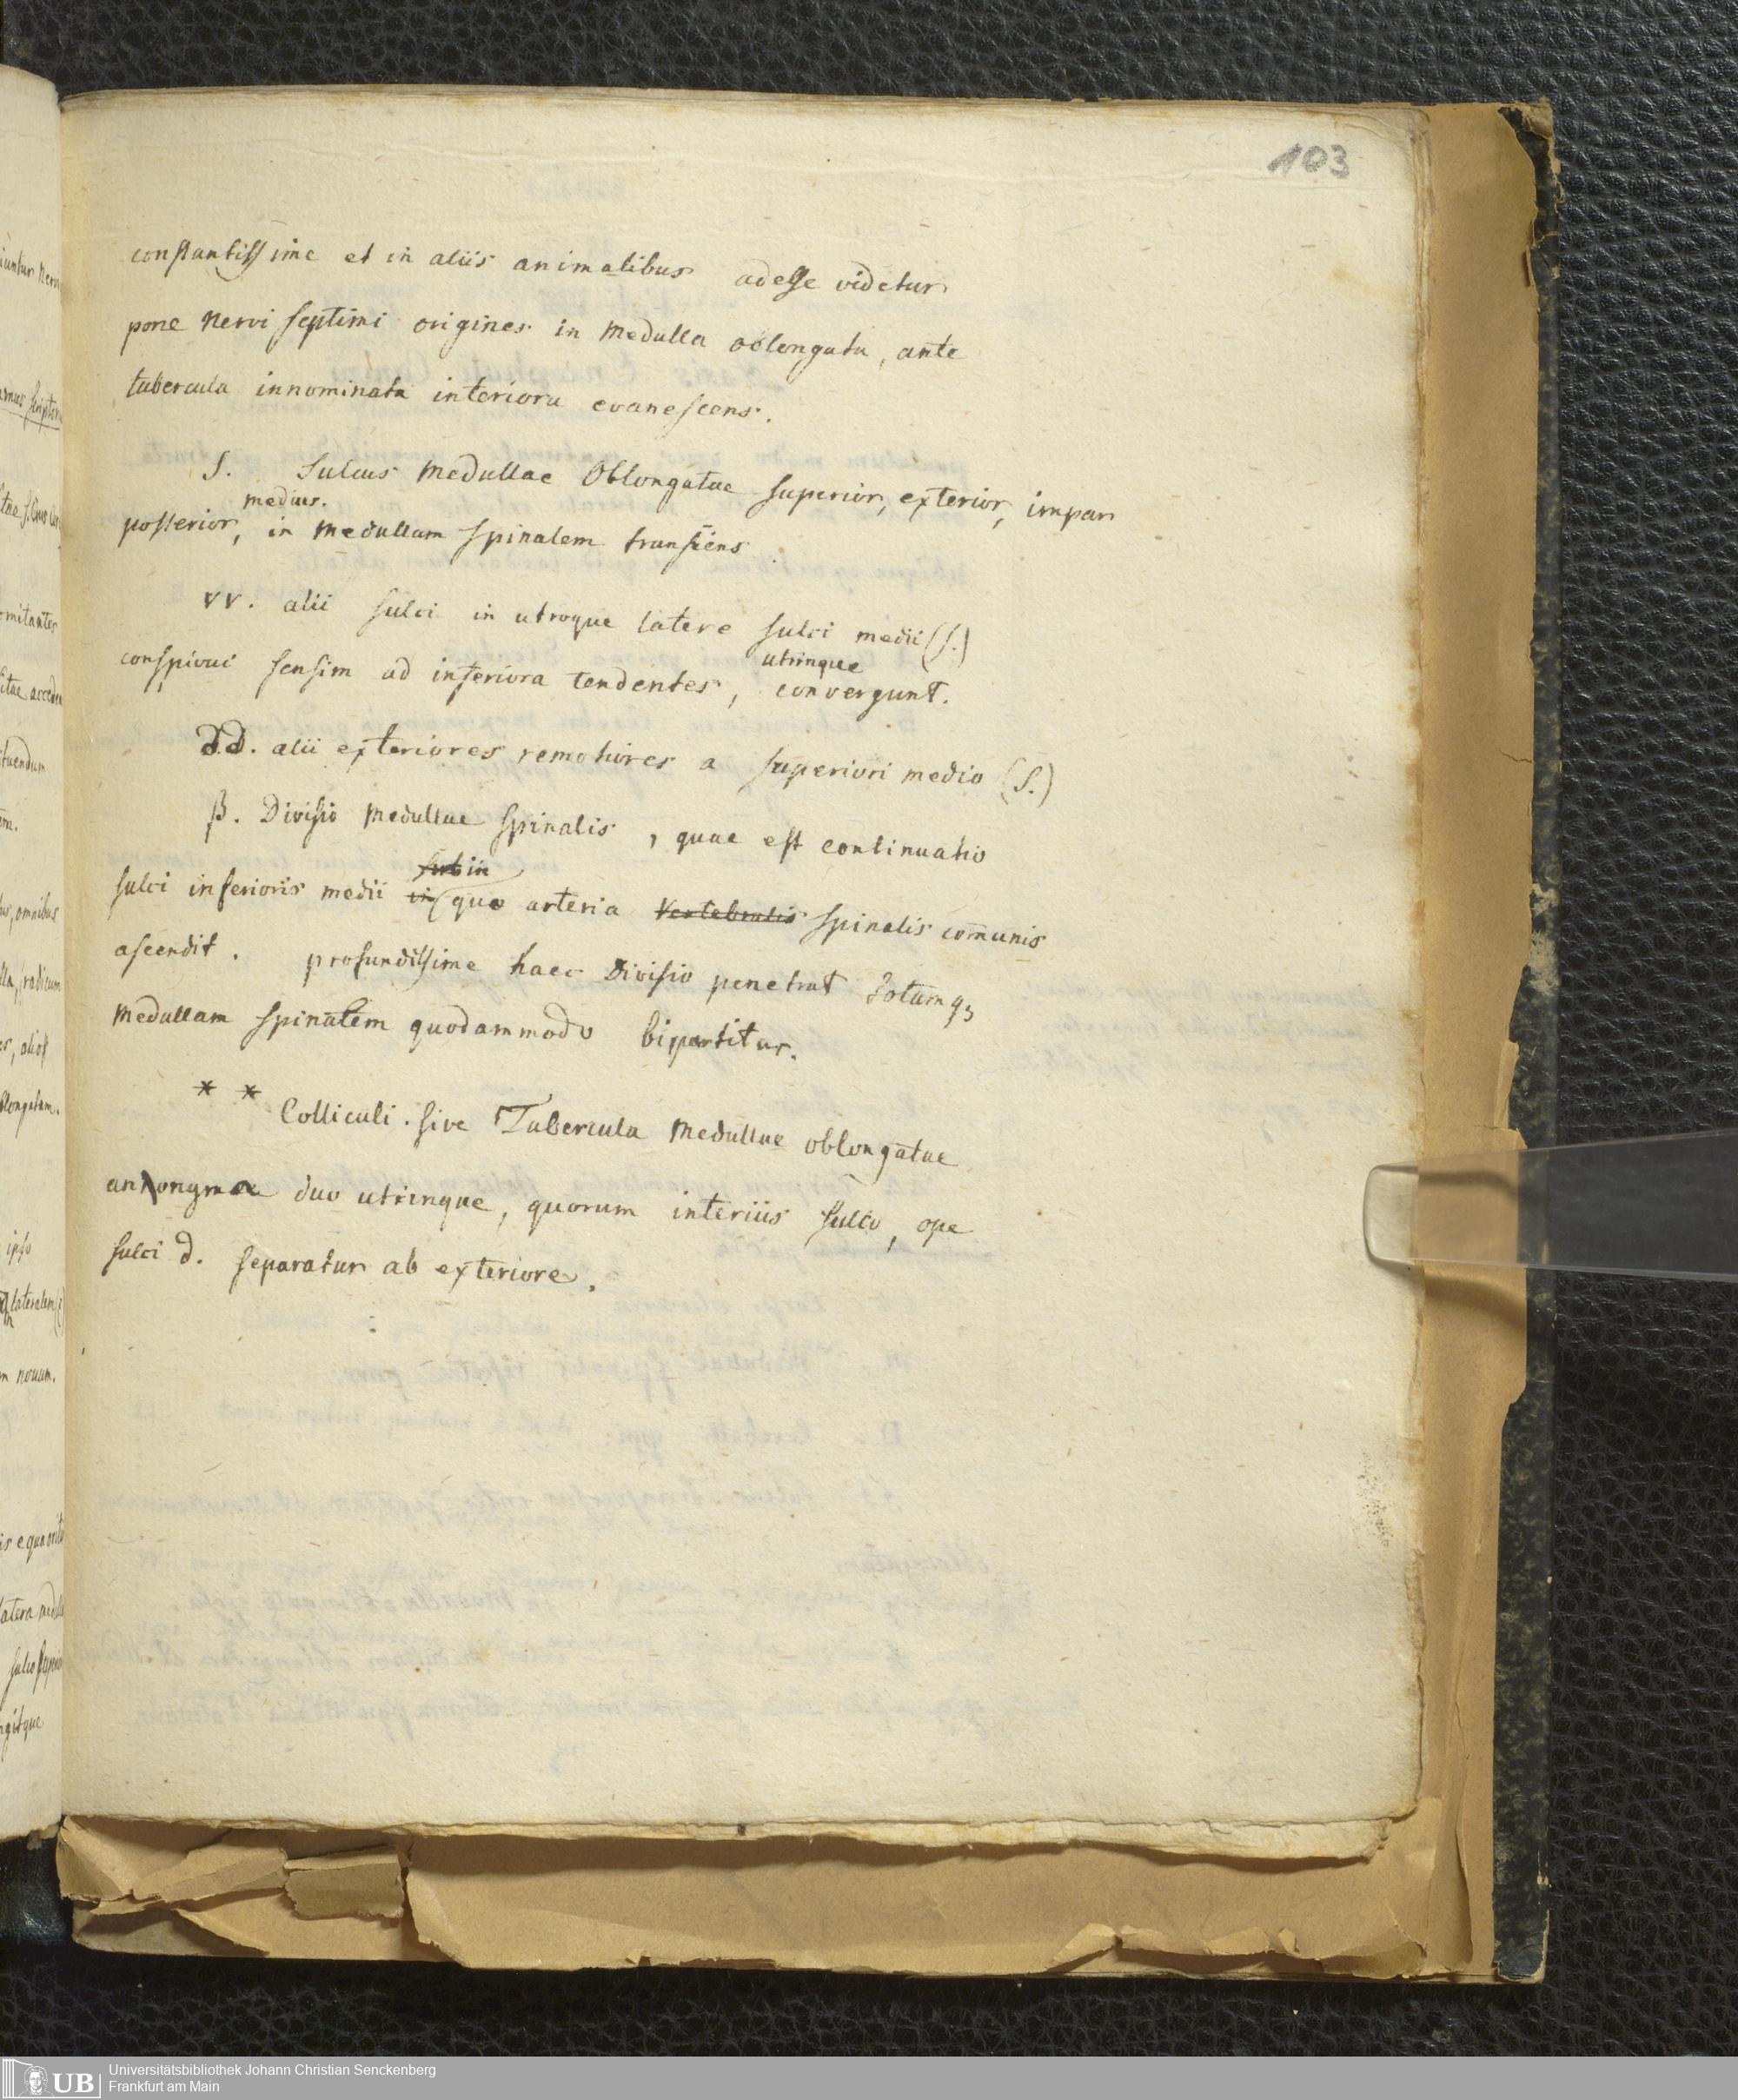 103
constantissime et in aliis animalibus adesse videtur
pone Nervi septimi origines in Medulla oblongata, ante
tubercula innominata interiora evanescens.
S. Sulcus Medullae Oblongatae superior, exterior, impar
medius.
posterior, in Medullam spinalem transiens
vv. alii sulci in utroque latere sulci medii (S.)
utrinque
conspicui sensim ad inferiora tendentes, convergunt.
dd. alii exteriores remotiores a superiori medio (S.)
β. Divisio Medullae spinalis, quae est continuatio
sulci inferioris medii in quo arteria Vertebralis spinalis com̄unis
ascendit. profundissime haec Divisio penetrat totamq3
Medullam spinalem quodammodo bipartitur.
* * Colliculi. sive Tubercula Medullae oblongatae
duo utrinque, quorum interiis sulco, ope
sulci d. separatur ab exteriore.
ipso
UB Universitätsbibliothek Johann Christian Senckenberg
Frankfurt am Main